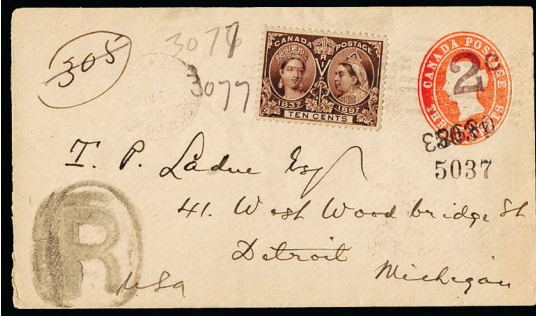 305
3077
3077
CANADA POSTAGE
1837 1897
TEN CENTS
CANADA POSTAGE
THREE
2c
5037
T. P. Ladue Esq
41. West Woodbridge St
Detroit
Michigan
USA
R